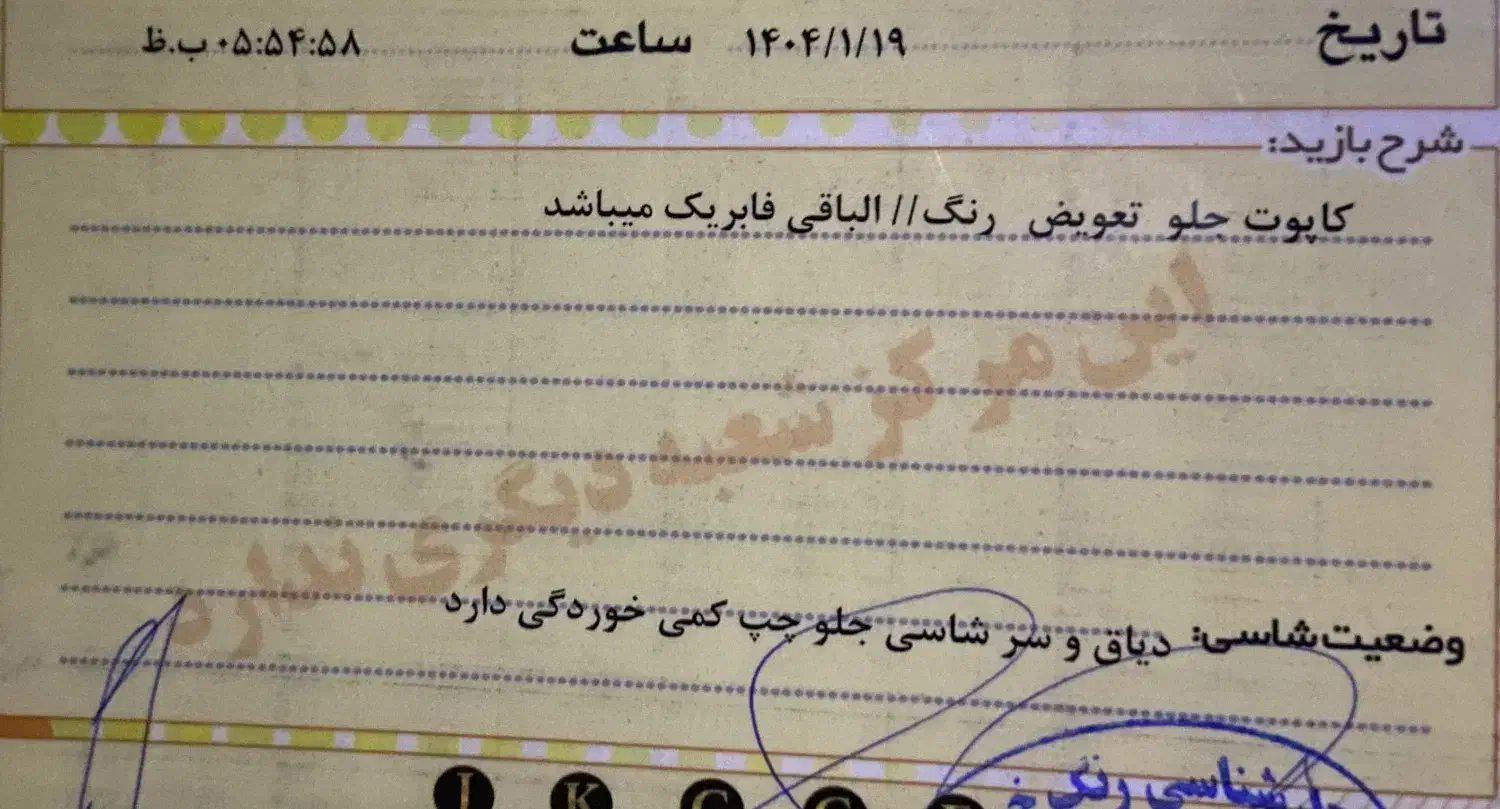 تاریخ ۱۴۰۴/۱/۱۹ ساعت ۰۵:۵۴:۵۸ ب.ظ
شرح بازید:
کاپوت جلو تعویض رنگ// الباقی فابریک میباشد
این مرکز شعبه دیگری ندارد
وضعیت شاسی: دیاق و سر شاسی جلو چپ کمی خوردگی دارد
شناسی رنگ
J K C